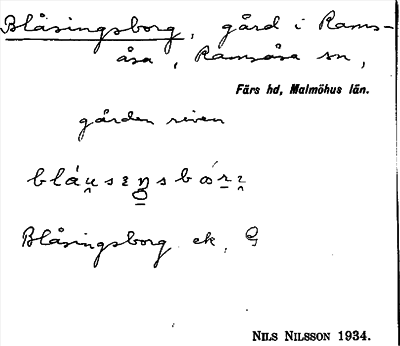 Blåsingsborg, gård i Rams-
åsa, Ramsåsa sn,
Färs hd, Malmöhus län.
gården riven
Blåsingsborg ek.
NILS NILSSON 1934.